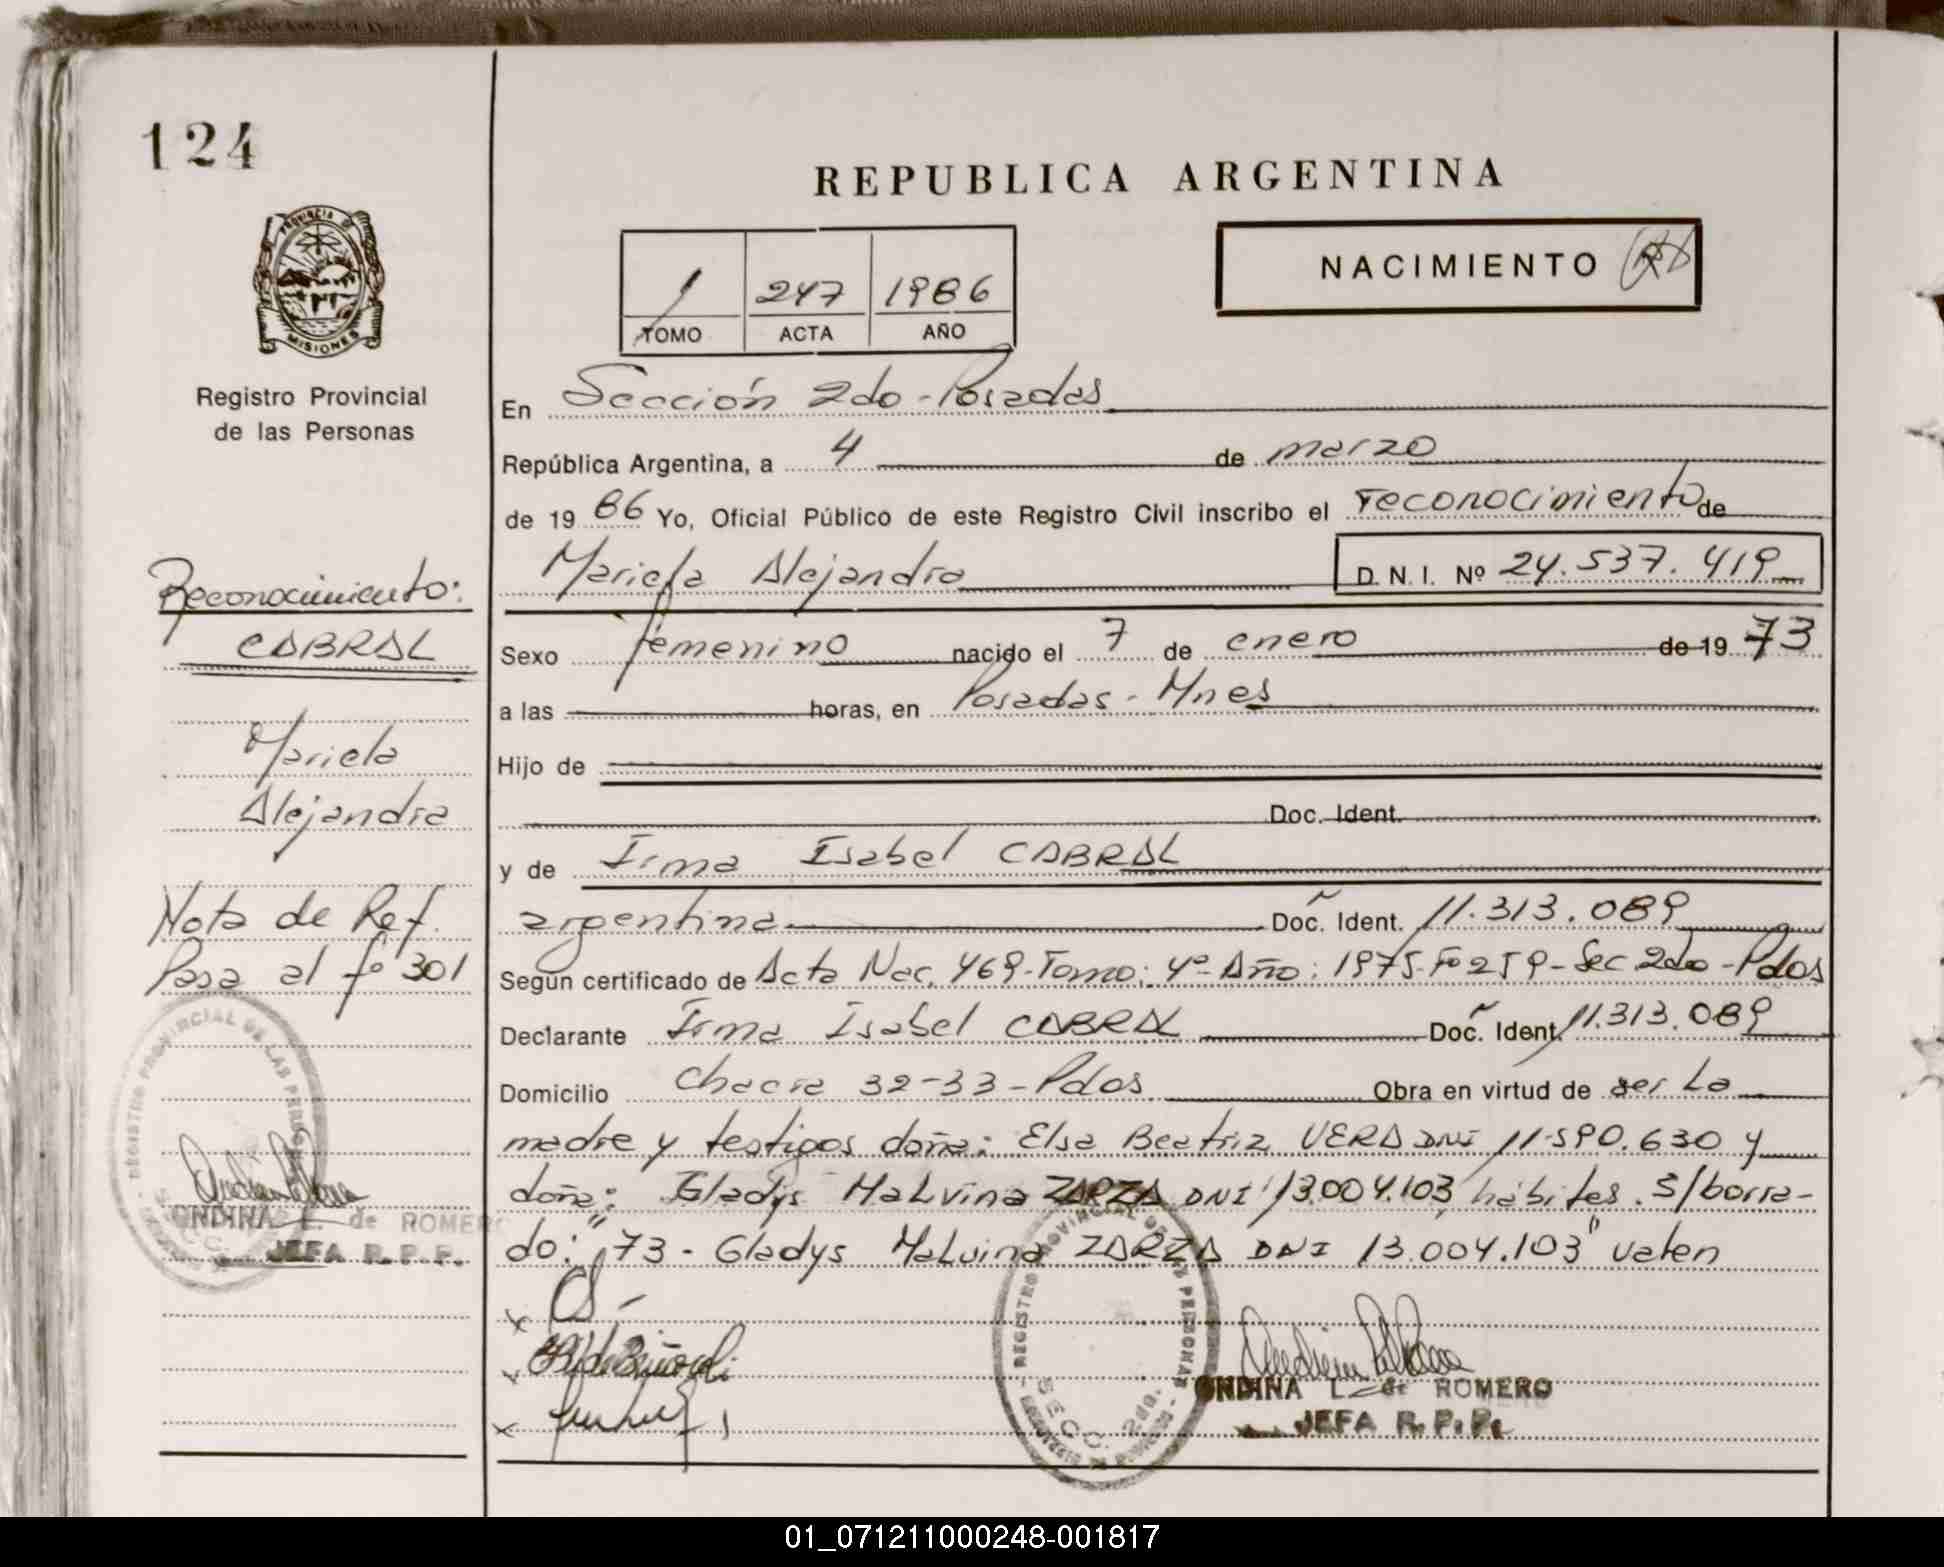 124
REPUBLICA ARGENTINA
PROVINCIA DE
MISIONES
Registro Provincial
de las Personas
1 247 1986
TOMO ACTA AÑO
NACIMIENTO
En Sección 2do - Posadas
República Argentina, a 4 de marzo
de 19 86 Yo, Oficial Público de este Registro Civil inscribo el reconocimiento de
Mariela Alejandra D. N. I. Nº 24.537.419
Sexo femenino nacido el 7 de enero de 19 73
a las horas, en Posadas - Mnes
Hijo de
Doc. Ident.
y de Irma Isabel CABRAL
argentina Doc. Ident. 11.313.089
Según certificado de Acta Nac. 469-Tomo: 4º-Año: 1975-Fº259-Sec 2do-Pdas
Declarante Irma Isabel CABRAL Doc. Ident. 11.313.089
Domicilio Chacra 32-33-Pdas Obra en virtud de ser la
madre y testigos doña: Elsa Beatriz VERA DNI 11.590.630 y
doña: Gladys Malvina ZARZA DNI 13.004.103, hábiles. S/borra-
do: "73 - Gladys Malvina ZARZA DNI 13.004.103" valen
Reconocimiento:
CABRAL
Mariela
Alejandra
Nota de Ref.
Pasa al fº 301
REGISTRO PROVINCIAL DE LAS PERSONAS
SECC. 2da.
ONDINA L. de ROMERO
JEFA R. P. P.
REGISTRO PROVINCIAL DE LAS PERSONAS
SECC. 2da.
ONDINA L. de ROMERO
JEFA R. P. P.
01_071211000248-001817